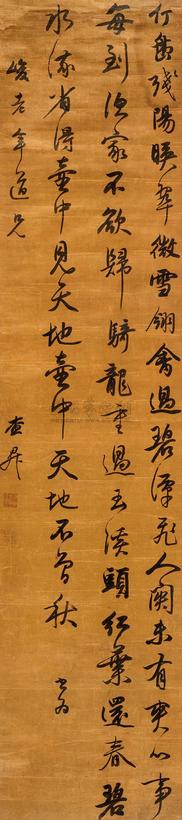 竹島殘陽映翠微雪翎禽過碧潭飛人間未有心事
每到漁家不欲歸騎龍重過玉溪頭紅葉還春碧
水流省得壺中見天地壺中天地不曾秋 書為
峻老年道兄 查昇